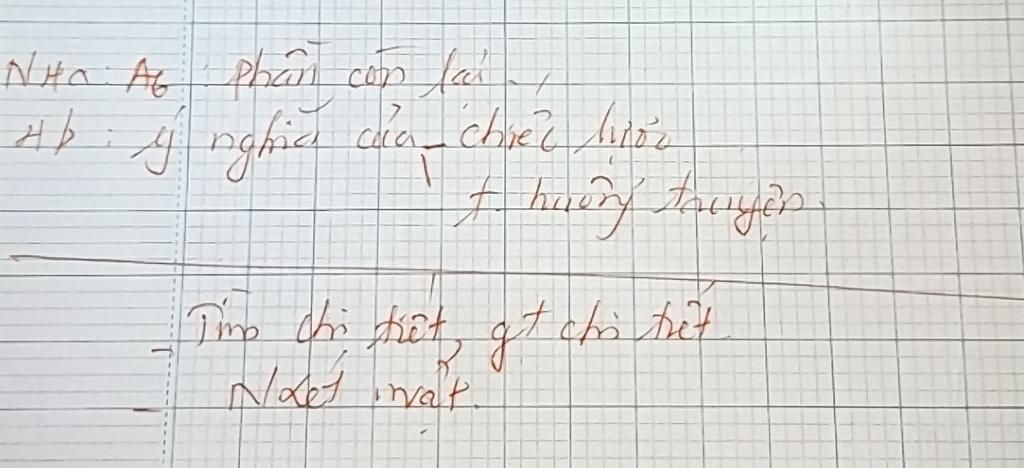 NHa: A6: phần còn lại
Hb: ý nghĩa của chiếc lược
t huống truyện.
- Tìm chi tiết, gt chi tiết
- N/xét nvật.